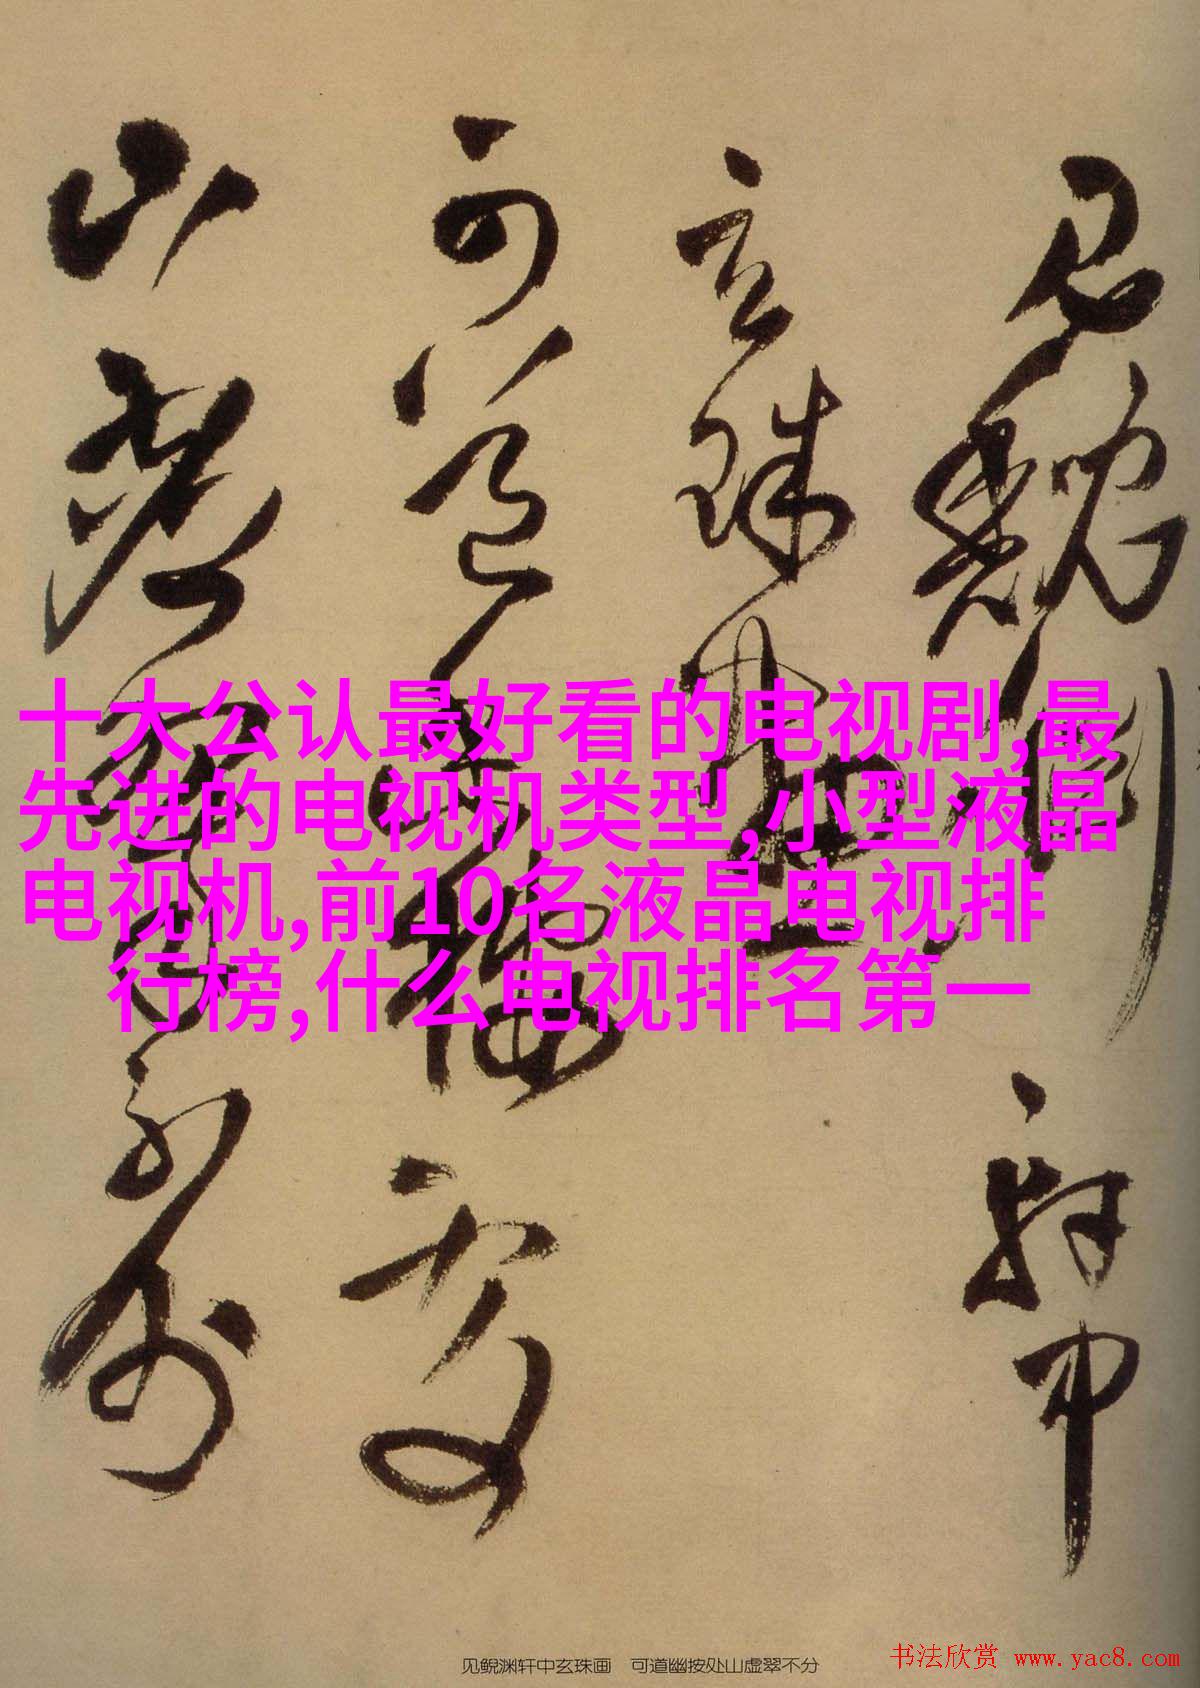 軒中
玄珠
可道幽處
山翠不分
十大公认最好看的电视剧,最
先进的电视机类型,小型液晶
电视机,前10名液晶电视排
行榜,什么电视排名第一
见鲵渊轩中玄珠画 可道幽按处山虚翠不分
书法欣赏 www.yac8.com